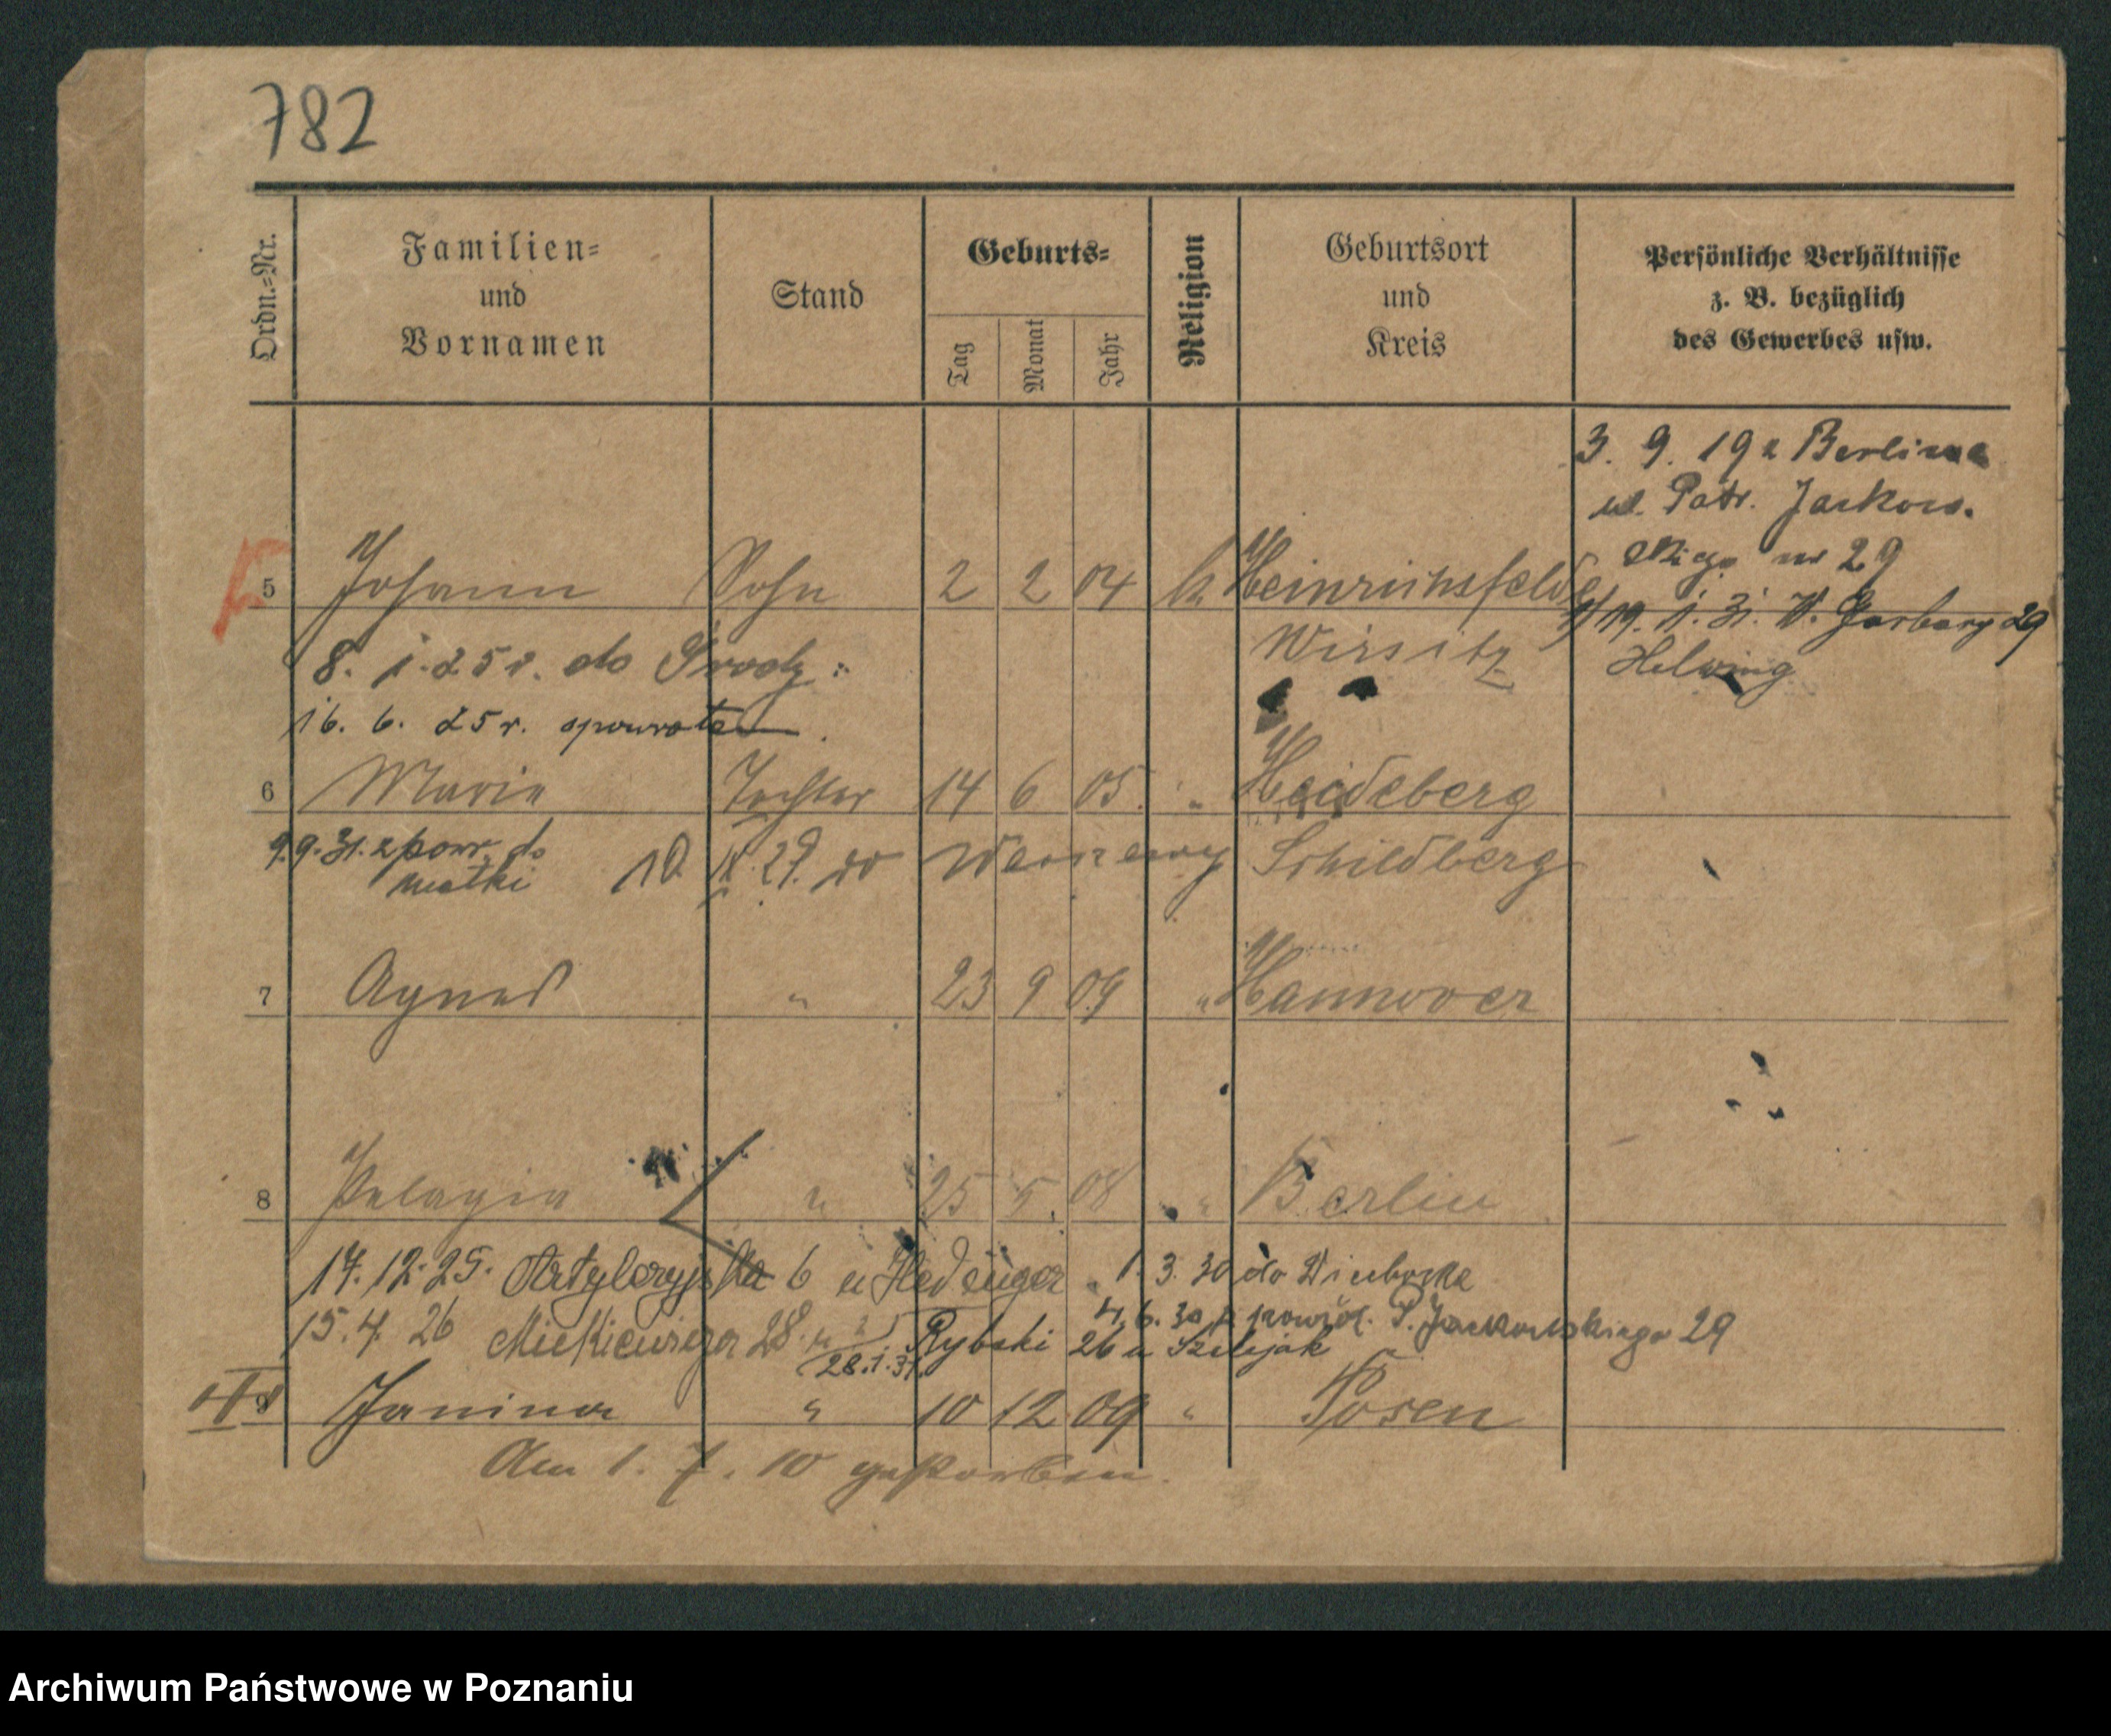 782
Ordn.=Nr.
Familien=
und
Vornamen
Stand
Geburts=
Tag
Monat
Jahr
Religion
Geburtsort
und
Kreis
Persönliche Verhältnisse
z. B. bezüglich
des Gewerbes usw.
3. 9. 19 z Berlina
ul. Patr. Jackow.
skiego nr 29
5 Johann Sohn 2 2 04 k Heinrichsfelde
19. 1. 31. W. Garbary 29
Wirsitz
Helwing
8. 1. 25 r. do Środy
16. 6. 25 r. spowrotem.
6 Marie Tochter 14 6 05. " Heideberg
9.9.31. z powr. do
matki
10 29. do Schildberg
7 Agnes " 23 9 09 " Hannover
8 Pelagia " 25 5. 08 " Berlin
17. 12. 25. Artyleryjska 6 u Hedinger 1. 3. 30 do
15. 4. 26 Mickiewicza 28. 4. 6. 30 z powrot. P. Jackowskiego 29
28.1.31. Rybaki 26 u
9 Janina " 10 12 09 " Posen
Am 1. 7. 10 gestorben.
Archiwum Państwowe w Poznaniu